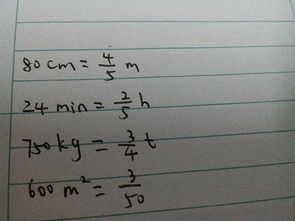 80 cm = 4/5 m
24 min = 2/5 h
750 kg = 3/4 t
600 m² = 3/50